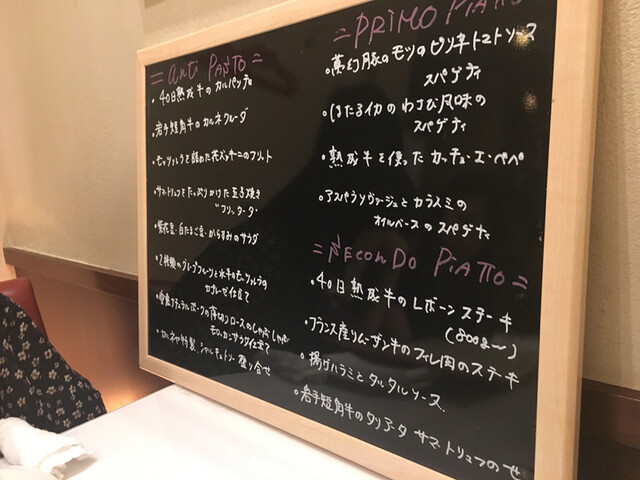 = anti PiATTO =
・40日熟成牛のカルパッチョ
・岩手短角牛のカルネクルーダ
・モッツァレラを詰めた花ズッキーニのフリット
・サマートリュフをたっぷりかけた玉子焼き
"フリッタータ"
・紫花豆・白たまご豆・からすみのサラダ
・2種類のグレープフルーツと水牛モッツァレラの
カプレーゼ仕立て
ナチュラルポークの薄切りロースのしゃぶしゃぶ
モロッカンサラダ仕立て
・カルネヤ特製、シャルキュトリー盛り合せ
= PRiMO PiATTO
・夢幻豚のモツのピリ辛トマトソース
スパゲティ
・ほたるイカのわさび風味の
スパゲティ
・熟成牛を使ったカッチョ・エ・ペペ
・アスパラソヴァージュとカラスミの
オイルベースのスパゲティ
= SECONDO PiATTO =
・40日熟成牛のLボーンステーキ
(800g〜)
・フランス産リムーザン牛のフィレ肉のステーキ
・揚げハラミとタルタルソース
・岩手短角牛のタリアータ サマートリュフのせ